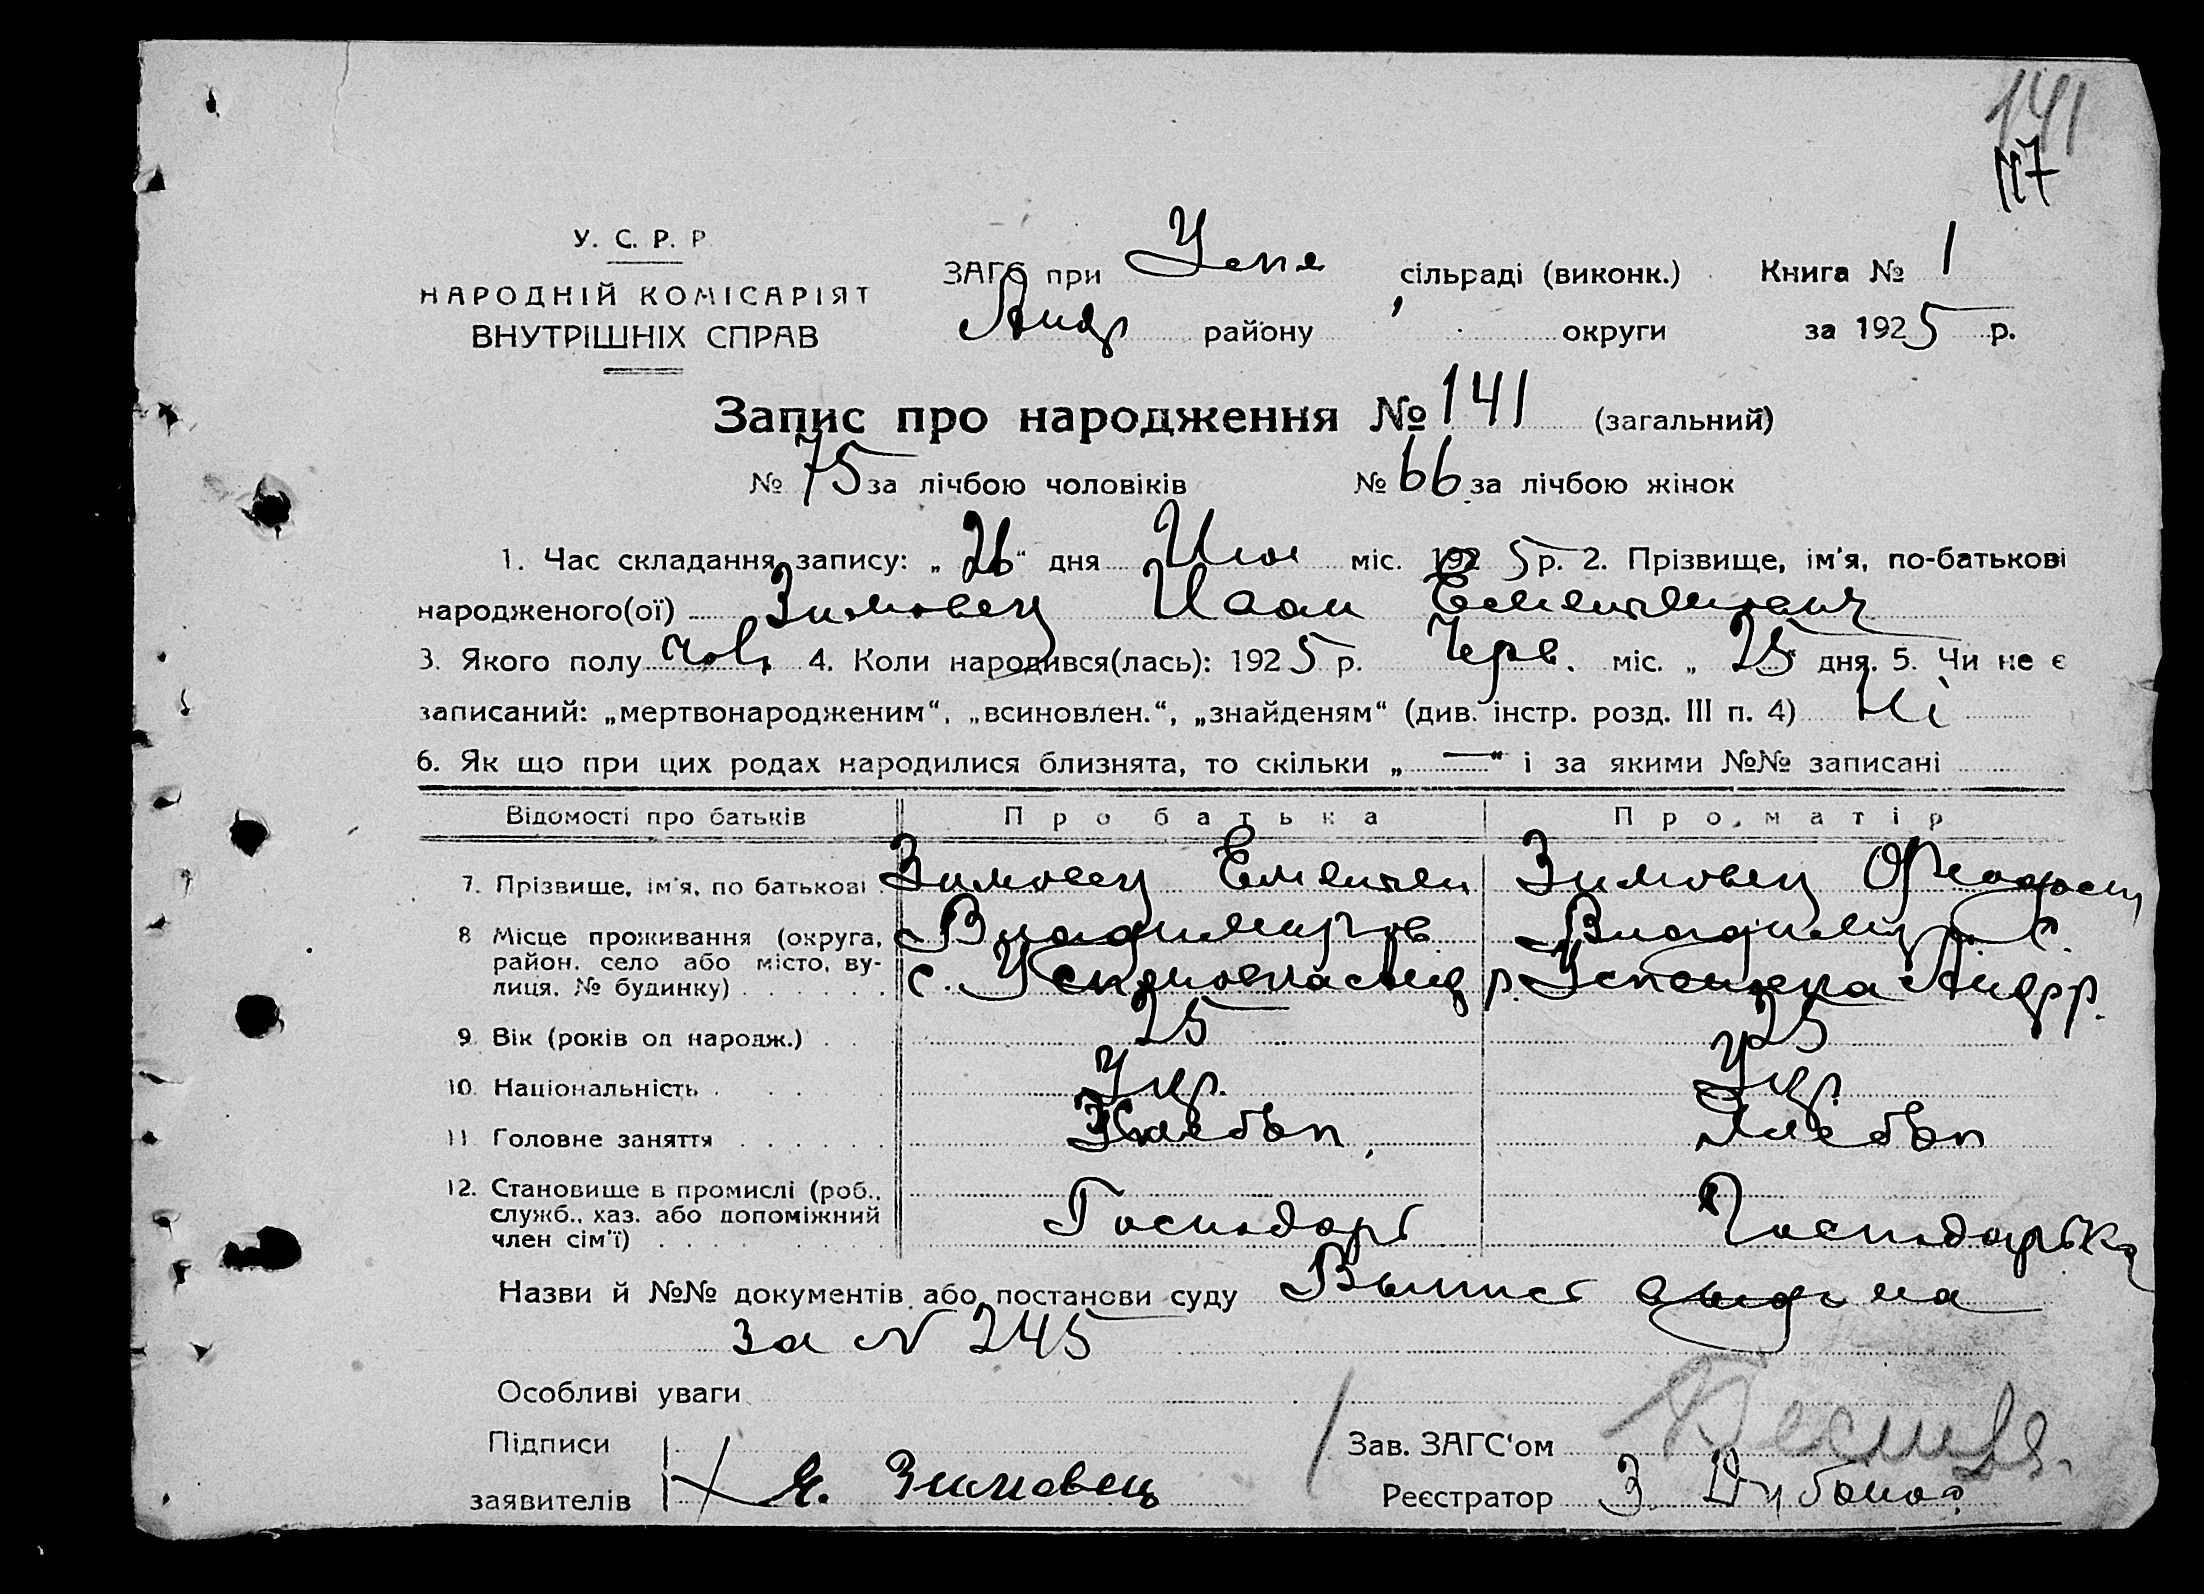 141
№7
У. С. Р. Р.
НАРОДНІЙ КОМІСАРІЯТ
ВНУТРІШНІХ СПРАВ
ЗАГС при Успе сільраді (виконк.) Книга № 1
Андр району округи за 1925 р.
Запис про народження № 141 (загальний)
№ 75 за лічбою чоловіків № 66 за лічбою жінок
1. Час складання запису: „26“ дня Июл міс. 1925 р. 2. Прізвище, ім'я, по-батькові
народженого(ої) Зимовец Иван
3. Якого полу чов. 4. Коли народився(лась): 1925 р. Черв. міс. „25“ дня. 5. Чи не є
записаний: „мертвонародженим“, „всиновлен.“, „знайденям“ (див. інстр. розд. III п. 4) Ні
6. Як що при цих родах народилися близнята, то скільки „—“ і за якими №№ записані
Відомості про батьків Про батька Про матір
7. Прізвище, ім'я, по батькові Зимовец Зимовец
8 Місце проживання (округа,
район, село або місто, ву-
лиця, № будинку) с.
9. Вік (років од народж.) 25 25
10. Національність Укр. Укр.
11. Головне заняття Хлебоп Хлебоп
12. Становище в промислі (роб.,
служб., хаз. або допоміжний
член сім'ї) Господарь Господарька
Назви й №№ документів або постанови суду Выпись
за № 245
Особливі уваги
Підписи Зав. ЗАГС'ом
заявителів Я. Зимовець Реєстратор З